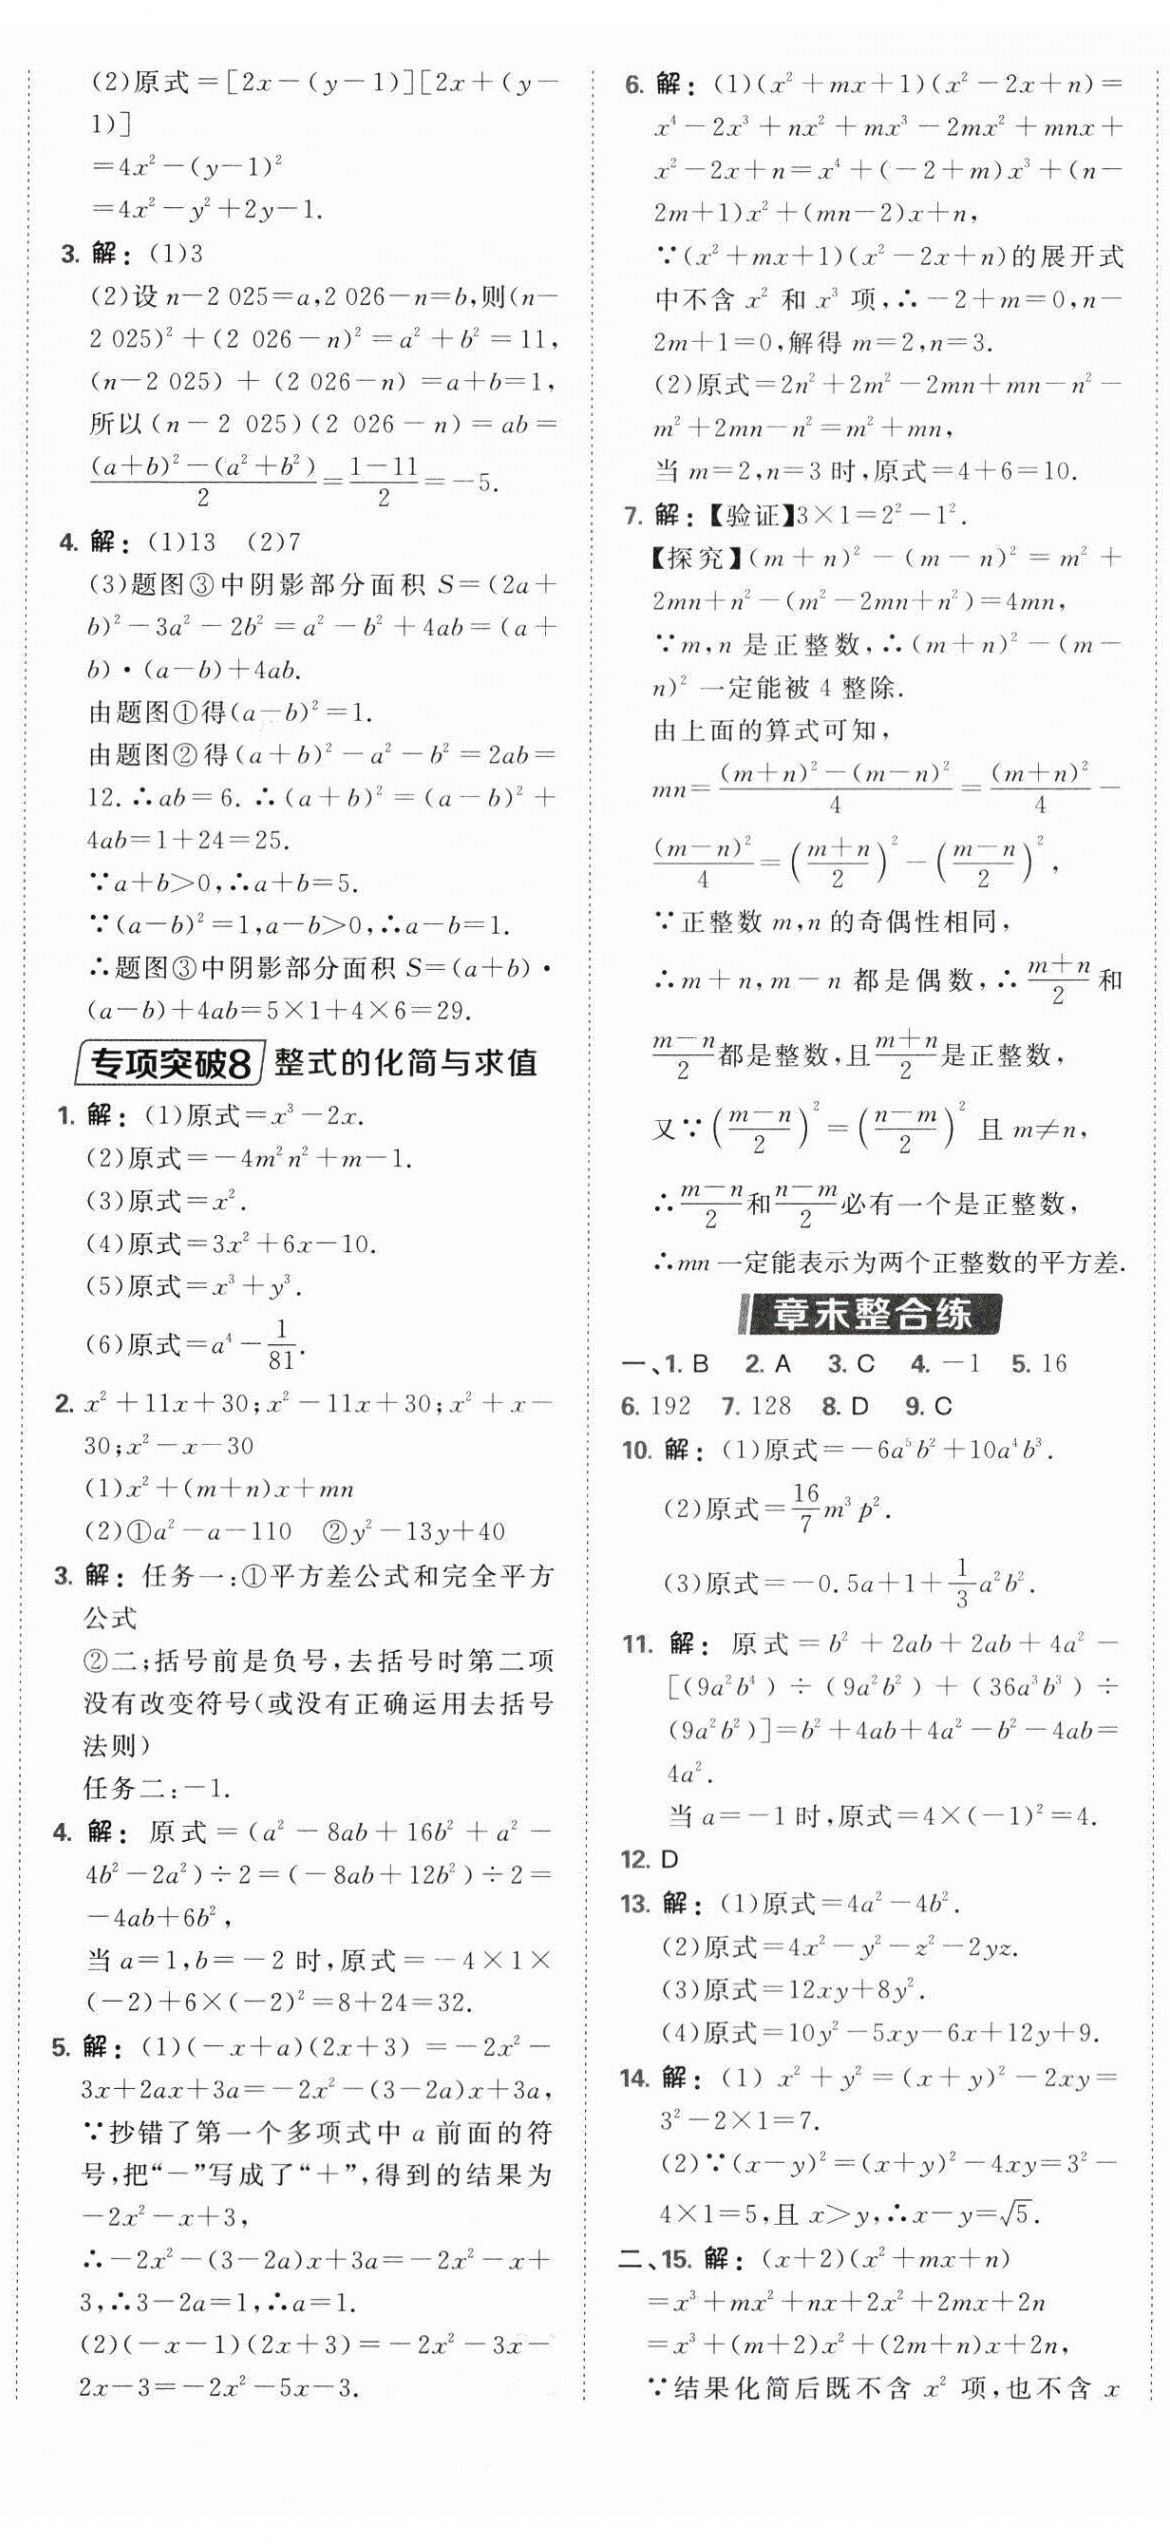 (2)原式=[2x-(y-1)][2x+(y-
1)]
=4x²-(y-1)²
=4x²-y²+2y-1.
3. 解：(1)3
(2)设 n-2 025=a,2 026-n=b,则(n-
2 025)²+(2 026-n)²=a²+b²=11,
(n-2 025)+(2 026-n)=a+b=1,
所以(n-2 025)(2 026-n)=ab=
\frac{(a+b)²-(a²+b²)}{2}=\frac{1-11}{2}=-5.
4. 解：(1)13 (2)7
(3)题图③中阴影部分面积 S=(2a+
b)²-3a²-2b²=a²-b²+4ab=(a+
b)·(a-b)+4ab.
由题图①得(a-b)²=1.
由题图②得(a+b)²-a²-b²=2ab=
12.∴ab=6.∴(a+b)²=(a-b)²+
4ab=1+24=25.
∵a+b>0,∴a+b=5.
∵(a-b)²=1,a-b>0,∴a-b=1.
∴题图③中阴影部分面积 S=(a+b)·
(a-b)+4ab=5×1+4×6=29.
专项突破8 整式的化简与求值
1. 解：(1)原式=x³-2x.
(2)原式=-4m²n²+m-1.
(3)原式=x².
(4)原式=3x²+6x-10.
(5)原式=x³+y³.
(6)原式=a⁴-\frac{1}{81}.
2. x²+11x+30;x²-11x+30;x²+x-
30;x²-x-30
(1)x²+(m+n)x+mn
(2)①a²-a-110 ②y²-13y+40
3. 解：任务一:①平方差公式和完全平方
公式
②二;括号前是负号,去括号时第二项
没有改变符号(或没有正确运用去括号
法则)
任务二:-1.
4. 解：原式=(a²-8ab+16b²+a²-
4b²-2a²)÷2=(-8ab+12b²)÷2=
-4ab+6b²,
当 a=1,b=-2 时,原式=-4×1×
(-2)+6×(-2)²=8+24=32.
5. 解：(1)(-x+a)(2x+3)=-2x²-
3x+2ax+3a=-2x²-(3-2a)x+3a,
∵抄错了第一个多项式中 a 前面的符
号,把“-”写成了“+”,得到的结果为
-2x²-x+3,
∴-2x²-(3-2a)x+3a=-2x²-x+
3,∴3-2a=1,∴a=1.
(2)(-x-1)(2x+3)=-2x²-3x-
2x-3=-2x²-5x-3.
6. 解：(1)(x²+mx+1)(x²-2x+n)=
x⁴-2x³+nx²+mx³-2mx²+mnx+
x²-2x+n=x⁴+(-2+m)x³+(n-
2m+1)x²+(mn-2)x+n,
∵(x²+mx+1)(x²-2x+n)的展开式
中不含 x² 和 x³ 项,∴-2+m=0,n-
2m+1=0,解得 m=2,n=3.
(2)原式=2n²+2m²-2mn+mn-n²-
m²+2mn-n²=m²+mn,
当 m=2,n=3 时,原式=4+6=10.
7. 解：【验证】3×1=2²-1².
【探究】(m+n)²-(m-n)²=m²+
2mn+n²-(m²-2mn+n²)=4mn,
∵m,n 是正整数,∴(m+n)²-(m-
n)² 一定能被 4 整除.
由上面的算式可知,
mn=\frac{(m+n)²-(m-n)²}{4}=\frac{(m+n)²}{4}-
\frac{(m-n)²}{4}=(\frac{m+n}{2})²-(\frac{m-n}{2})²,
∵正整数 m,n 的奇偶性相同,
∴m+n,m-n 都是偶数,∴\frac{m+n}{2}和
\frac{m-n}{2}都是整数,且\frac{m+n}{2}是正整数,
又∵(\frac{m-n}{2})²=(\frac{n-m}{2})² 且 m≠n,
∴\frac{m-n}{2}和\frac{n-m}{2}必有一个是正整数,
∴mn 一定能表示为两个正整数的平方差.
章末整合练
一、1. B 2. A 3. C 4. -1 5. 16
6. 192 7. 128 8. D 9. C
10. 解：(1)原式=-6a⁵b²+10a⁴b³.
(2)原式=\frac{16}{7}m³p².
(3)原式=-0.5a+1+\frac{1}{3}a²b².
11. 解：原式=b²+2ab+2ab+4a²-
[(9a²b⁴)÷(9a²b²)+(36a³b³)÷
(9a²b²)]=b²+4ab+4a²-b²-4ab=
4a².
当 a=-1 时,原式=4×(-1)²=4.
12. D
13. 解：(1)原式=4a²-4b².
(2)原式=4x²-y²-z²-2yz.
(3)原式=12xy+8y².
(4)原式=10y²-5xy-6x+12y+9.
14. 解：(1) x²+y²=(x+y)²-2xy=
3²-2×1=7.
(2)∵(x-y)²=(x+y)²-4xy=3²-
4×1=5,且 x>y,∴x-y=√5.
二、15. 解：(x+2)(x²+mx+n)
=x³+mx²+nx+2x²+2mx+2n
=x³+(m+2)x²+(2m+n)x+2n,
∵结果化简后既不含 x² 项,也不含 x